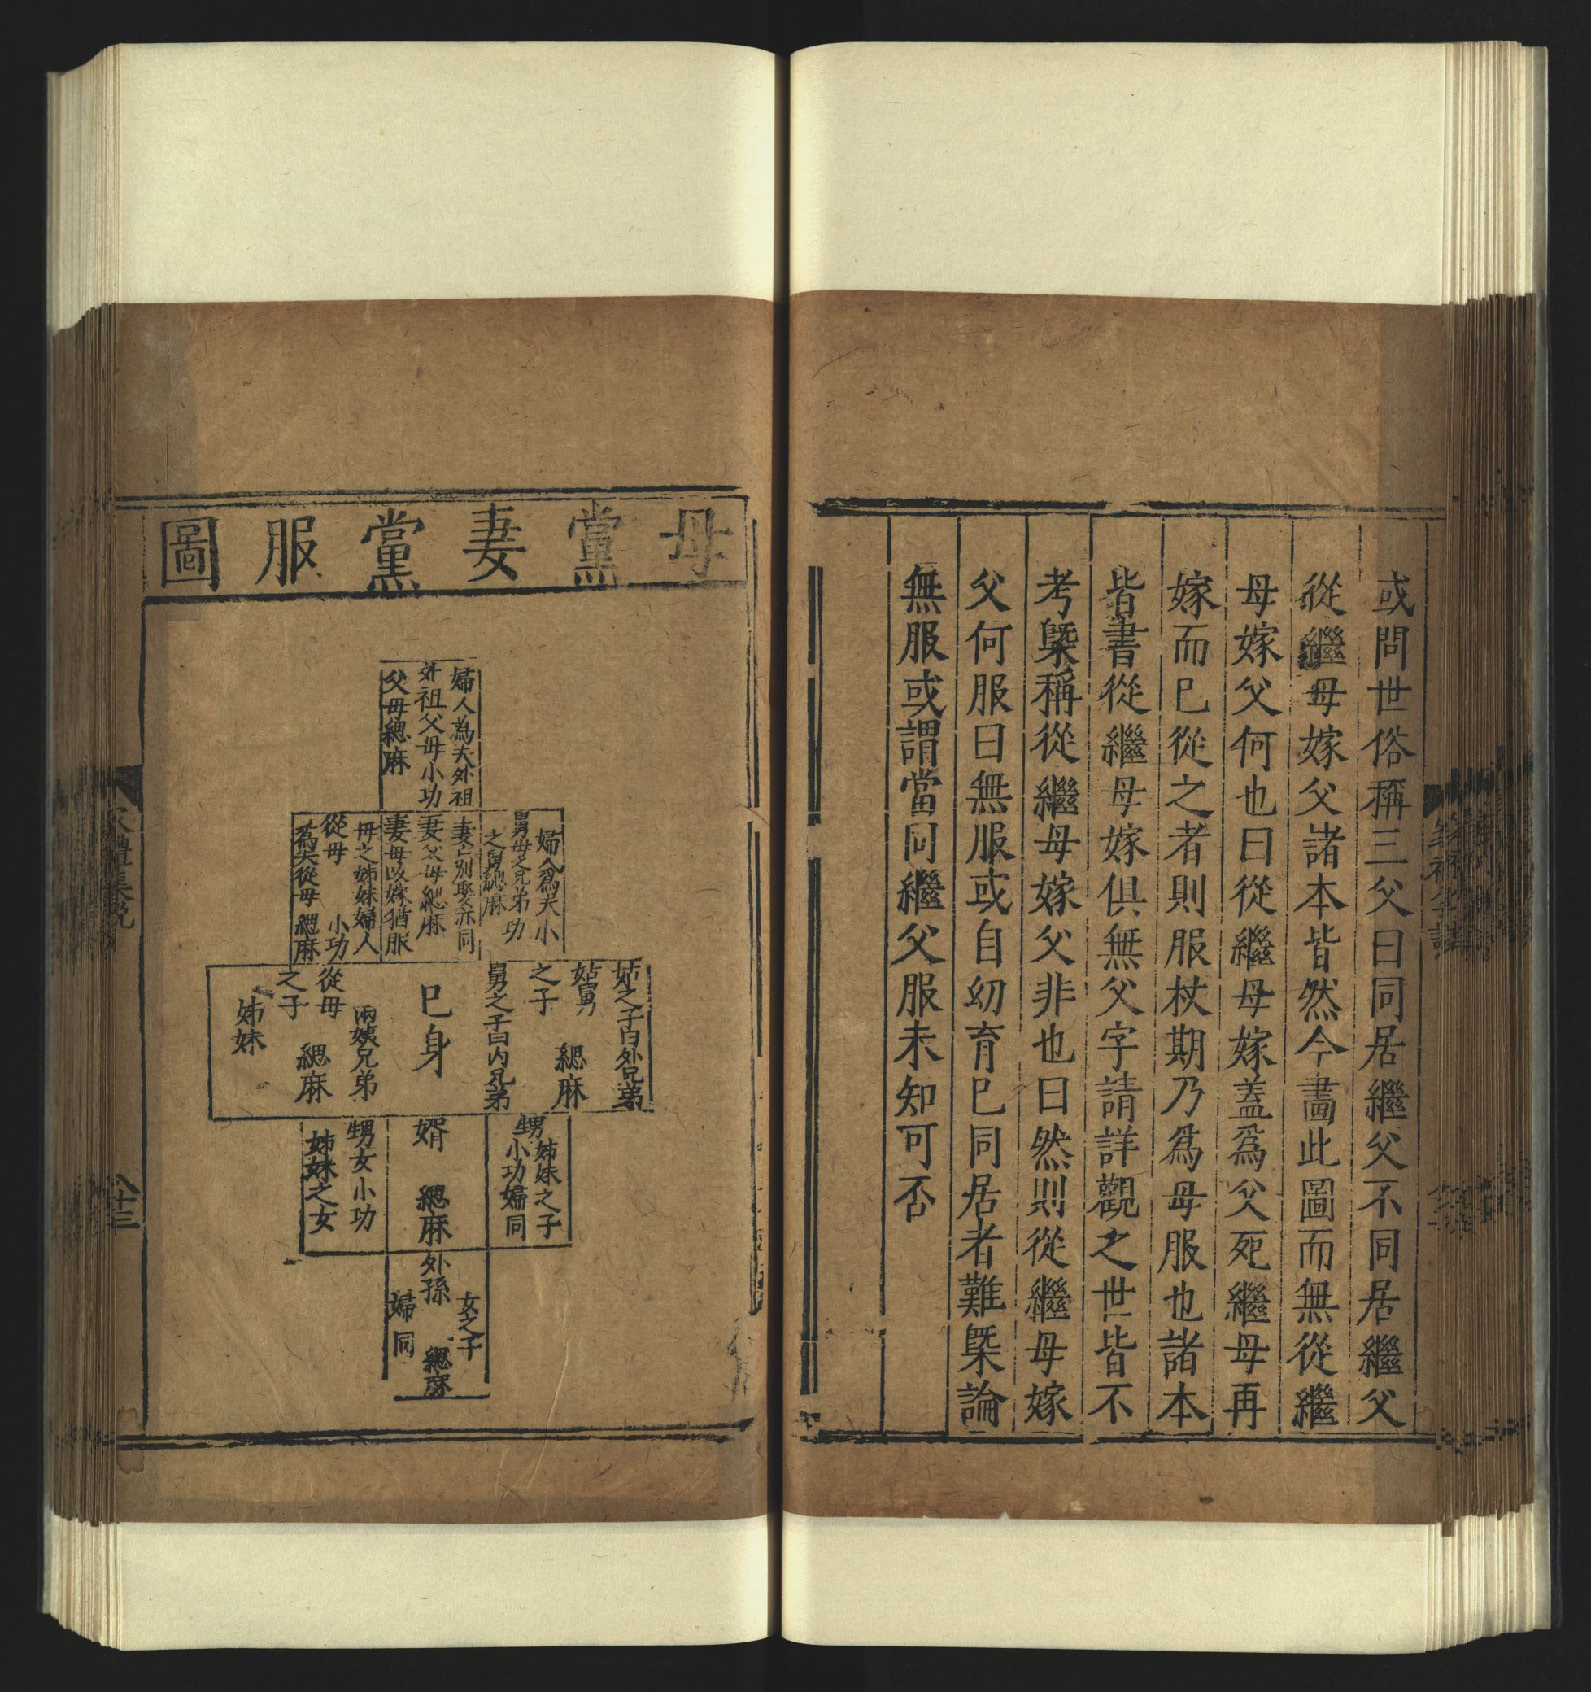 或問世俗稱三父曰同居繼父不同居繼父
從繼母嫁父諸本皆然今畵此圖而無從繼
母嫁父何也曰從繼母嫁蓋爲父死繼母再
嫁而已從之者則服杖期乃爲母服也諸本
皆書從繼母嫁俱無父字請詳觀之世皆不
考槩稱從繼母嫁父非也曰然則從繼母嫁
父何服曰無服或自幼育已同居者難槩論
無服或謂當同繼父服未知可否
母黨妻黨服圖
婦人為夫外祖
外祖父母小功
父母緦麻
婦人爲夫
之舅緦麻
舅母之兄弟 小功
妻亡別娶亦同
妻父母緦麻
妻母改嫁猶服
母之姊妹婦人
從母 小功
爲夫從母 緦麻
姑之子曰外兄弟
姑舅
之子 緦麻
舅之子曰內兄弟
己身
兩姨兄弟
從母
之子 緦麻
姊妹
姊妹之子
甥
小功婦同
婿 緦麻
甥女小功
姊妹之女
女之子
外孫 緦麻
婦同
八十三